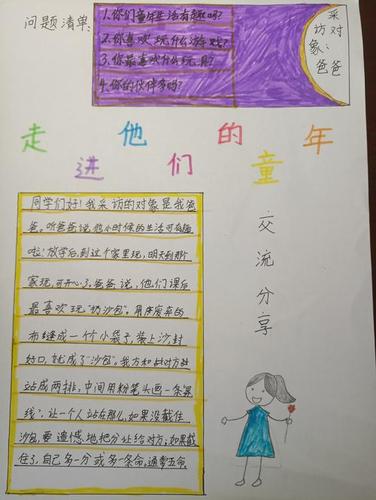 问题清单:
1.你们童年生活有趣吗?
2.你喜欢玩什么游戏?
3.你最喜欢什么玩具?
4.你的伙伴多吗?
采访对象:爸爸
走进他们的童年
交流分享
同学们好!我采访的对象是我爸
爸。听爸爸说他小时候的生活可有趣
啦!放学后,到这个家里玩,明天到那个
家玩,可开心了,爸爸说,他们课后
最喜欢玩“扔沙包”。用废弃的
布缝成一个小袋子,装上沙封
好口,就成了“沙包”。我方和对方站
站成两排,中间用粉笔头画一条“累
线”,让一个人站在那儿,如果没截住
沙包,要遗憾地把分让给对方,如果截
住了,自己多一分或多一条命,通常五命